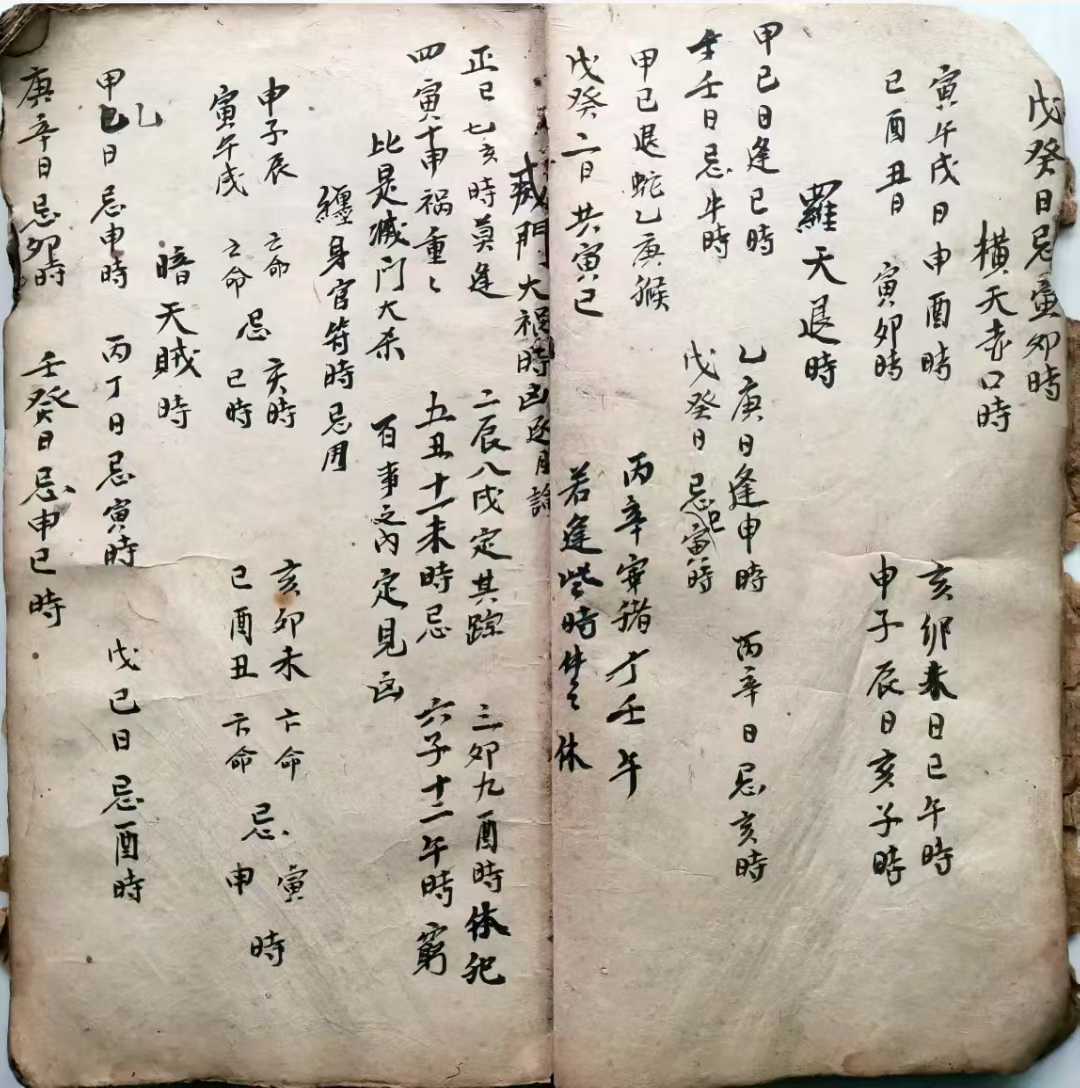 戊癸日忌 卯時
橫天赤口時
寅午戌日申酉時 亥卯未日巳午時
巳酉丑日 寅卯時 申子辰日亥子時
羅天退時
甲己日逢巳時 乙庚日逢申時 丙辛日忌亥時
壬日忌午時 戊癸日忌寅時
甲己退蛇乙庚猴 丙辛 猪丁壬午
戊癸二日共寅巳 若逢些時件〻休
滅門大禍時凶 月論
正巳七亥時莫逢 二辰八戌定其踪 三卯九酉時休犯
四寅十申禍重〻 五丑十一未時忌 六子十二午時窮
比是滅门大杀 百事之內定見凶
纏身官符時忌用
申子辰 亡命 亥時 亥卯未 亡命 寅
寅午戌 亡命 忌 巳時 巳酉丑 亡命 忌 申 時
暗天賊時
甲乙日忌申時 丙丁日忌寅時 戊己日忌酉時
庚辛日忌卯時 壬癸日忌申巳時